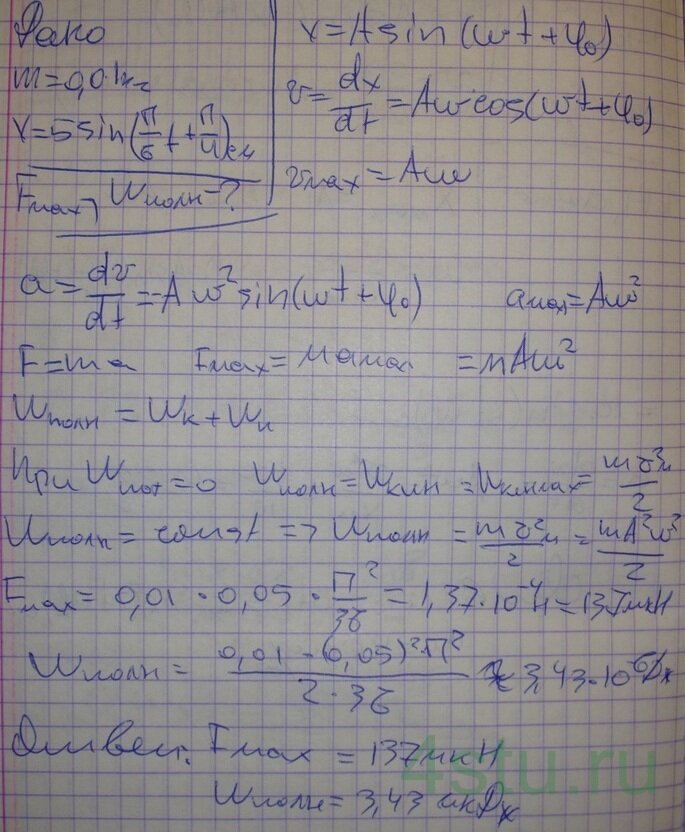 Дано
m=0,01кг
x=5sin(π/6 t+π/4)см
Fmax, Wполн-?
x=Asin(ωt+φ₀)
v=dx/dt=Aωcos(ωt+φ₀)
vmax=Aω
a=dv/dt=-Aω²sin(ωt+φ₀) amax=Aω²
F=ma Fmax=mamax=mAω²
Wполн=Wк+Wп
При Wпот=0 Wполн=Wкин=Wкинmax=mv²м/2
Wполн=const=>Wполн=mv²м/2=mA²ω²/2
Fmax=0,01·0,05·π²/36=1,37·10⁻⁴Н=137мкН
Wполн=0,01·(0,05)²·π²/2·36≈3,43·10⁻⁶Дж
Ответ: Fmax=137мкН
Wполн=3,43мкДж
4stu.ru